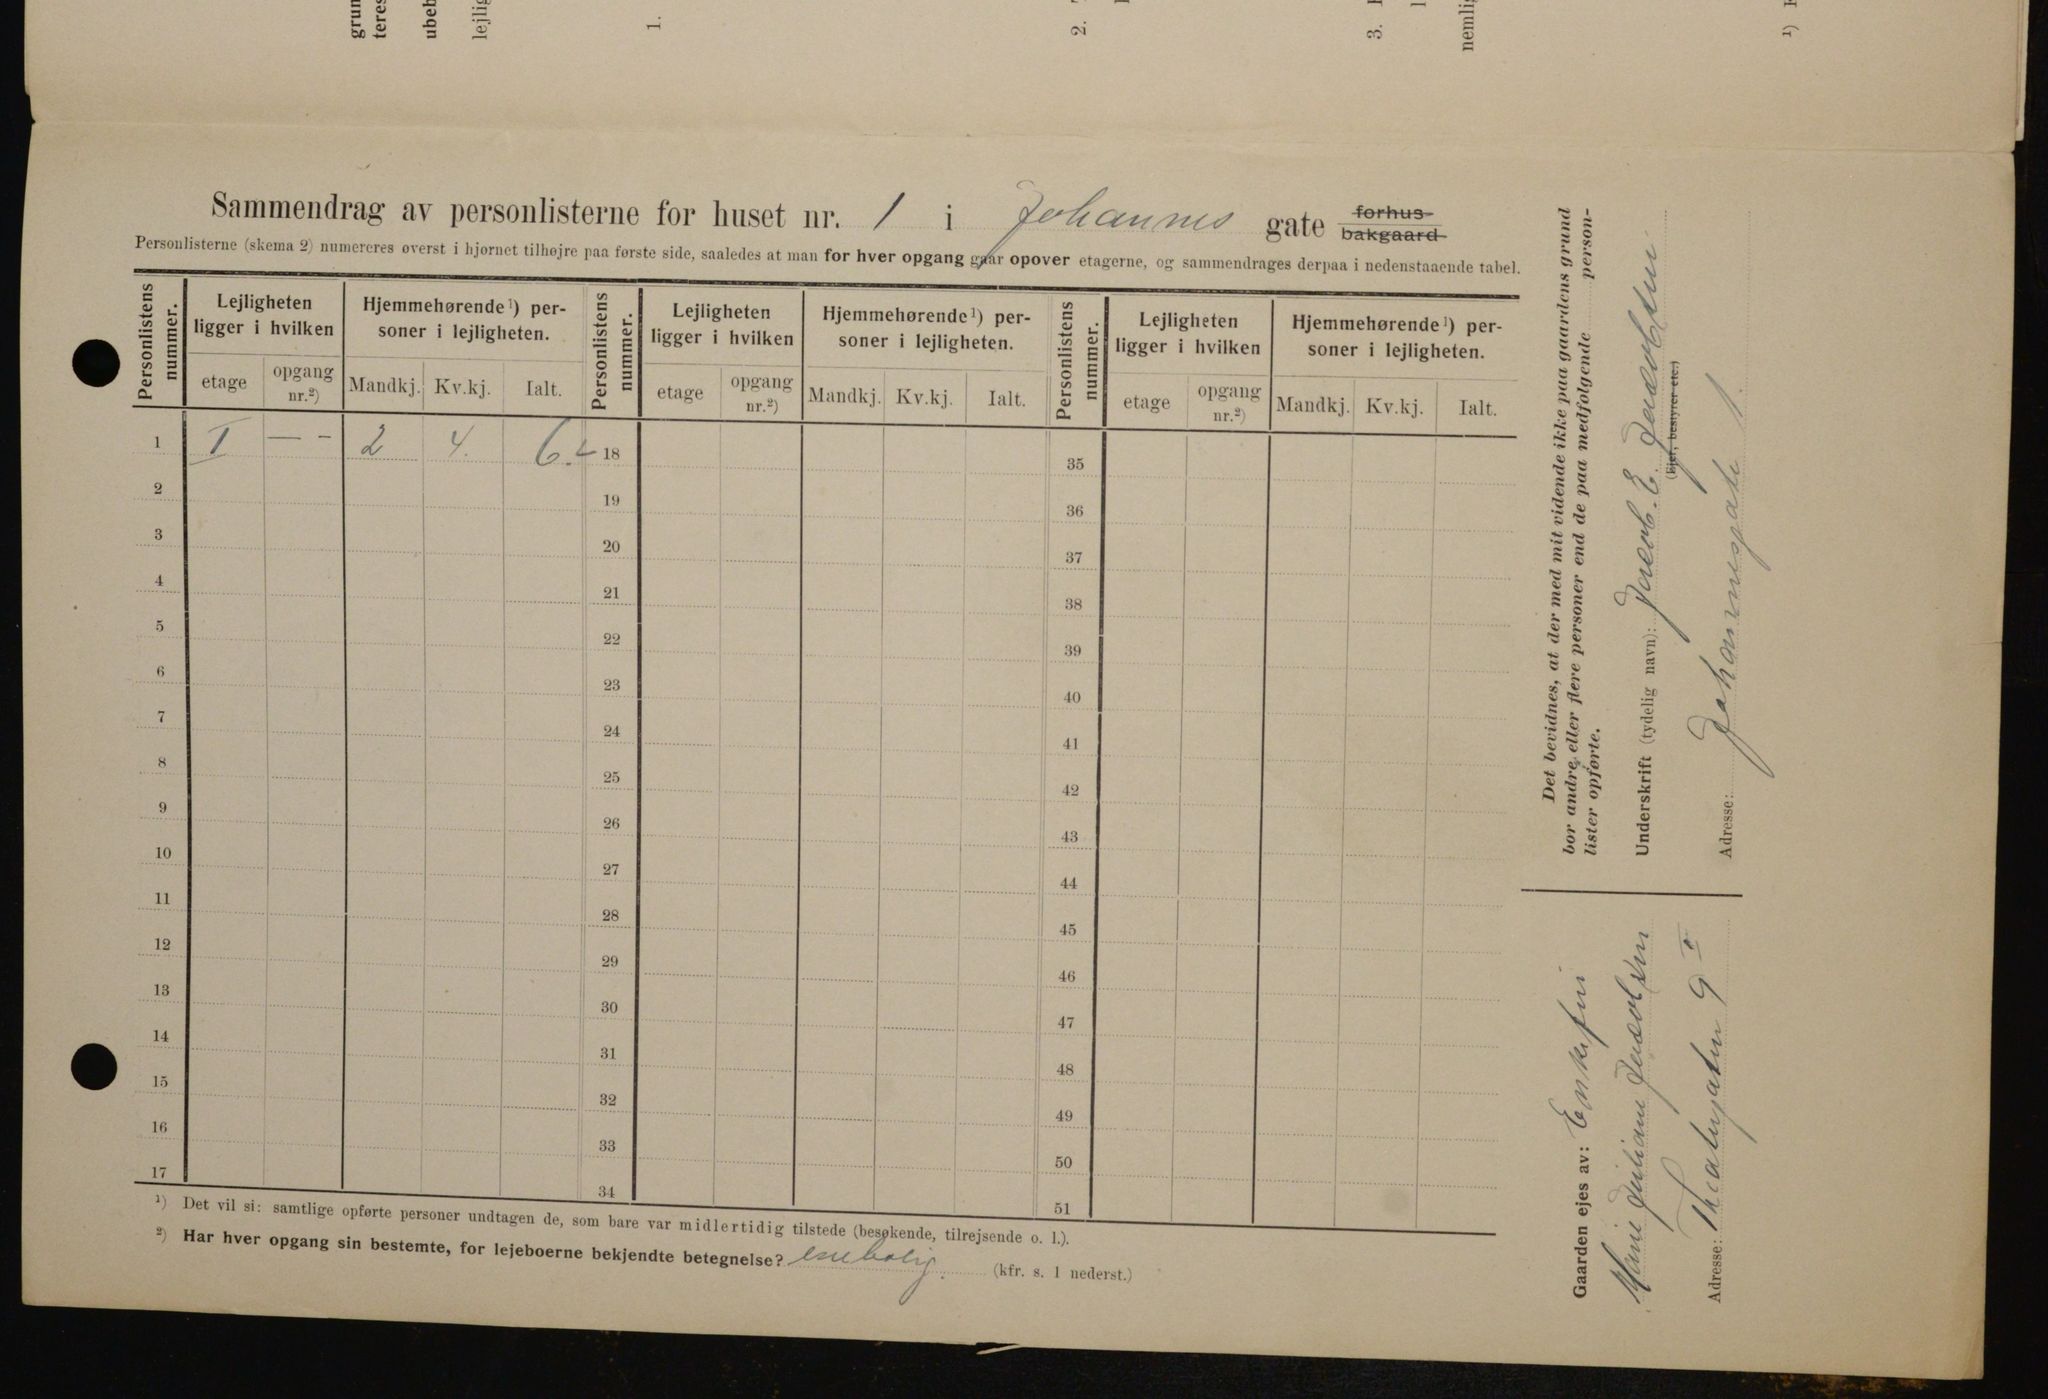 grun
teres
ubeb
lejlig
1.
2.
3.
nemlig
¹)
Sammendrag av personlisterne for huset nr. 1 i Johannes gate forhus bakgaard
Personlisterne (skema 2) numereres øverst i hjørnet tilhøjre paa første side, saaledes at man for hver opgang gaar opover etagerne, og sammendrages derpaa i nedenstaaende tabel.
Personlistens nummer.
Lejligheten ligger i hvilken
etage
opgang nr.²)
Hjemmehørende¹) personer i lejligheten.
Mandkj.
Kv.kj.
Ialt.
Personlistens nummer.
Lejligheten ligger i hvilken
etage
opgang nr.²)
Hjemmehørende¹) personer i lejligheten.
Mandkj.
Kv.kj.
Ialt.
Personlistens nummer.
Lejligheten ligger i hvilken
etage
opgang nr.²)
Hjemmehørende¹) personer i lejligheten.
Mandkj.
Kv.kj.
Ialt.
1 I — - 2 4. 6. 18 35
2 19 36
3 20 37
4 21 38
5 22 39
6 23 40
7 24 41
8 25 42
9 26 43
10 27 44
11 28 45
12 29 46
13 30 47
14 31 48
15 32 49
16 33 50
17 34 51
¹) Det vil si: samtlige opførte personer undtagen de, som bare var midlertidig tilstede (besøkende, tilrejsende o. l.).
²) Har hver opgang sin bestemte, for lejeboerne bekjendte betegnelse? enebolig. (kfr. s. 1 nederst.)
Det bevidnes, at der med mit vidende ikke paa gaardens grund
bor andre eller flere personer end de paa medfølgende person-
lister opførte.
Underskrift (tydelig navn): Jacob. E. Jacobsen
(Ejer, bestyrer etc.)
Adresse: Johannesgate 1.
Gaarden ejes av: Enkefru
Juliane Jacobsen
Adresse: Theatergaten 9 I